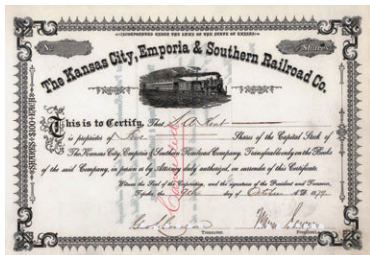 INCORPORATED UNDER THE LAWS OF THE STATE OF KANSAS
No. Shares
The Kansas City, Emporia & Southern Railroad Co.
This is to Certify, That
is proprietor of Five Shares of the Capital Stock of
The Kansas City, Emporia & Southern Railroad Company, Transferable only on the Books
of the said Company, in person or by Attorney duly authorized, on surrender of this Certificate.
Witness the Seal of the Corporation, and the signatures of the President and Treasurer,
Topeka, this day of October A.D. 1879.
Treasurer. President.
SHARES $100 EACH
Cancelled